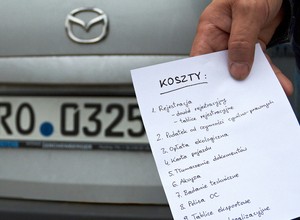 KOSZTY:
1. Rejestracja
- dowód rejestracyjny
- tablice rejestracyjne
2. Podatek od czynności cywilno-prawnych
3. Opłata ekologiczna
4. Karta pojazdu
5. Tłumaczenie dokumentów
6. Akcyza
7. Badanie techniczne
8. Polisa OC
9. Tablice eksportowe
RO 0325